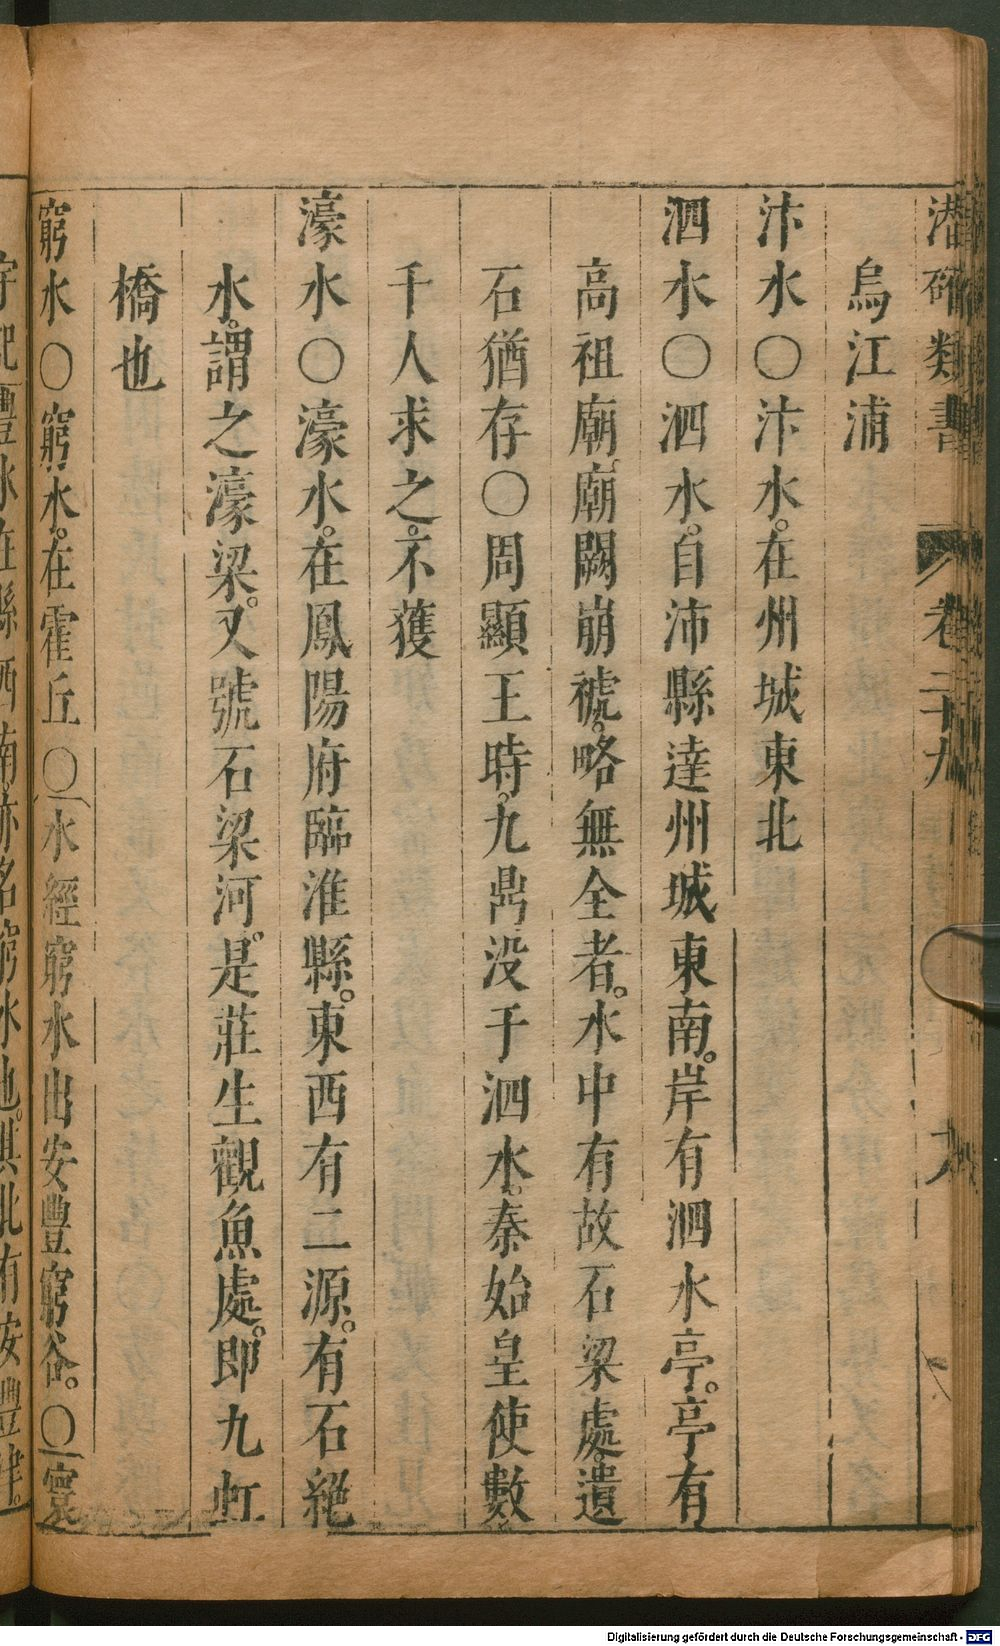 潜確類書 卷二十九 九
烏江浦
汴水○汴水。在州城東北
泗水○泗水。自沛縣達州城東南。岸有泗水亭。亭有
高祖廟。廟闕崩褫。略無全者。水中有故石梁處。遺
石猶存○周顯王時。九鼎没于泗水。秦始皇使數
千人求之。不獲
濠水○濠水。在鳳陽府臨淮縣。東西有二源。有石絕
水。謂之濠梁。又號石梁河。是莊生觀魚處。即九虹
橋也
窮水○窮水。在霍丘○水經窮水出安豐窮谷。○寰
宇記豐水在縣西南。亦名窮水也。其北有安豐津。
Digitalisierung gefördert durch die Deutsche Forschungsgemeinschaft - DFG